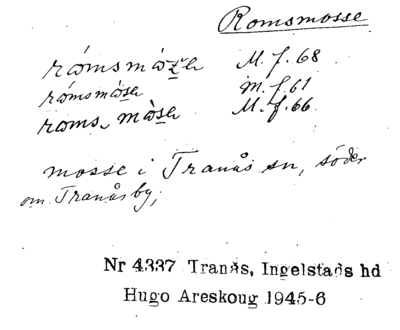 Romsmosse
rómsmòsse M. f. 68
rómsmòse M. f. 61
roms, mòse M. f. 66
mosse i Tranås sn, söder
om Tranås by;
Nr 4337 Tranås, Ingelstads hd
Hugo Areskoug 1945-6